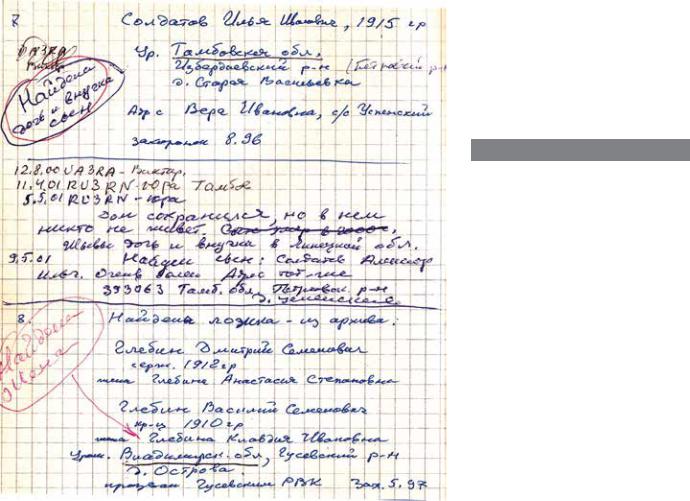 7
Солдатов Илья Иванович, 1915 гр
UA3RA
Ур. Тамбовская обл.
Избердеевский р-н (Петровский р-н
д. Старая Васильевка
Найдена
дочь и внучка
сын
Адр с Вера Ивановна, с/с Успенский
захоронен 8.96
12.8.00 UA3RA - Виктор.
11.4.01 RU3RN - Юра Тамбов
5.5.01 RU3RN - Юра
дом сохранился, но в нем
никто не живет.
Живы дочь и внучка в Липецкой обл.
9.5.01 Найден сын: Солдатов Александр
Ильич. Очень болен Адрес тот-же
393063 Тамб. обл, Петровск. р-н
д. Успенское
8. Найдена ложка - из архива:
Найдена
жена
Глебин Дмитрий Семенович
серж. 1918 гр
жена Глебина Анастасия Степановна
Глебин Василий Семенович
кр-ц 1910 гр
жена Глебина Клавдия Ивановна
Урож. Владимирск. обл, Гусевский р-н
д. Острова.
призван Гусевским РВК Зах. 5.97